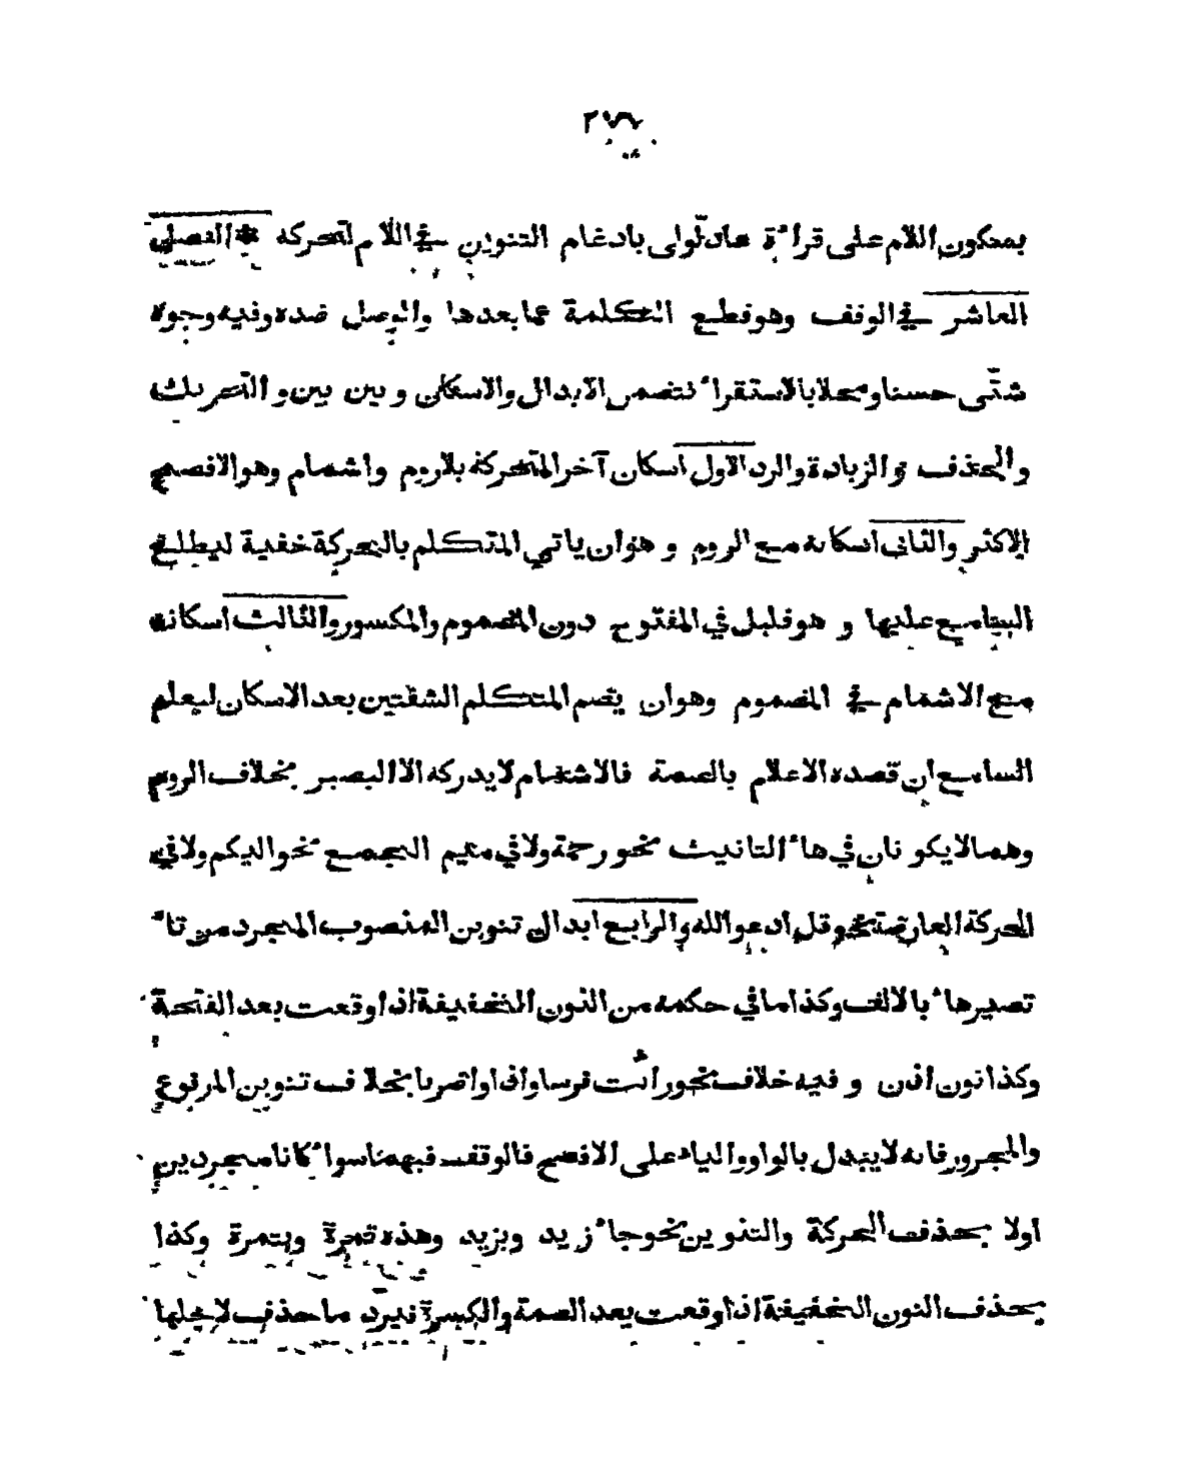 بسكون اللام على قراءة عاد لّولى بادغام التنوين في اللام لتحركه * الفصل
العاشر في الوقف وهو قطع الكلمة عما بعدها والوصل ضده وفيه وجوه
شتّى حسنا ومحلا بالاستقراء تتضمن الابدال والاسكان وبين بين والتحريك
والحذف والزيادة والرد الاول اسكان آخر المتحركة بلا روم واشمام وهو الافصح
الاكثر والثاني اسكانه مع الروم وهو ان ياتي المتكلم بالحركة خفية ليطلع
السامع عليها وهو قليل في المفتوح دون المضموم والمكسور والثالث اسكانه
مع الاشمام في المضموم وهو ان يضم المتكلم الشفتين بعد الاسكان ليعلم
السامع ان قصده الاعلام بالضمة فالاشمام لا يدركه الا البصير بخلاف الروم
وهما لا يكونان في هاء التانيث نحو رحمة ولا في ميم الجمع نحو اليكم ولا في
الحركة العارضة نحو قل ادعوا الله والرابع ابدال تنوين المنصوب المجرد من تاء
تصير هاء بالالف وكذا ما في حكمه من النون الخفيفة اذا وقعت بعد الفتحة
وكذا نون اذن وفيه خلاف نحو رائت فرسا واذا واضربا بخلاف تنوين المرفوع
والمجرور فانه لا يبدل بالواو والياء على الافصح فالوقف فيهما سواء كانا مجردين
اولا بحذف الحركة والتنوين نحو جاء زيد وبزيد وهذه تمرة وبتمرة وكذا
بحذف النون الخفيفة اذا وقعت بعد الضمة والكسرة فيردّ ما حذف لاجلها